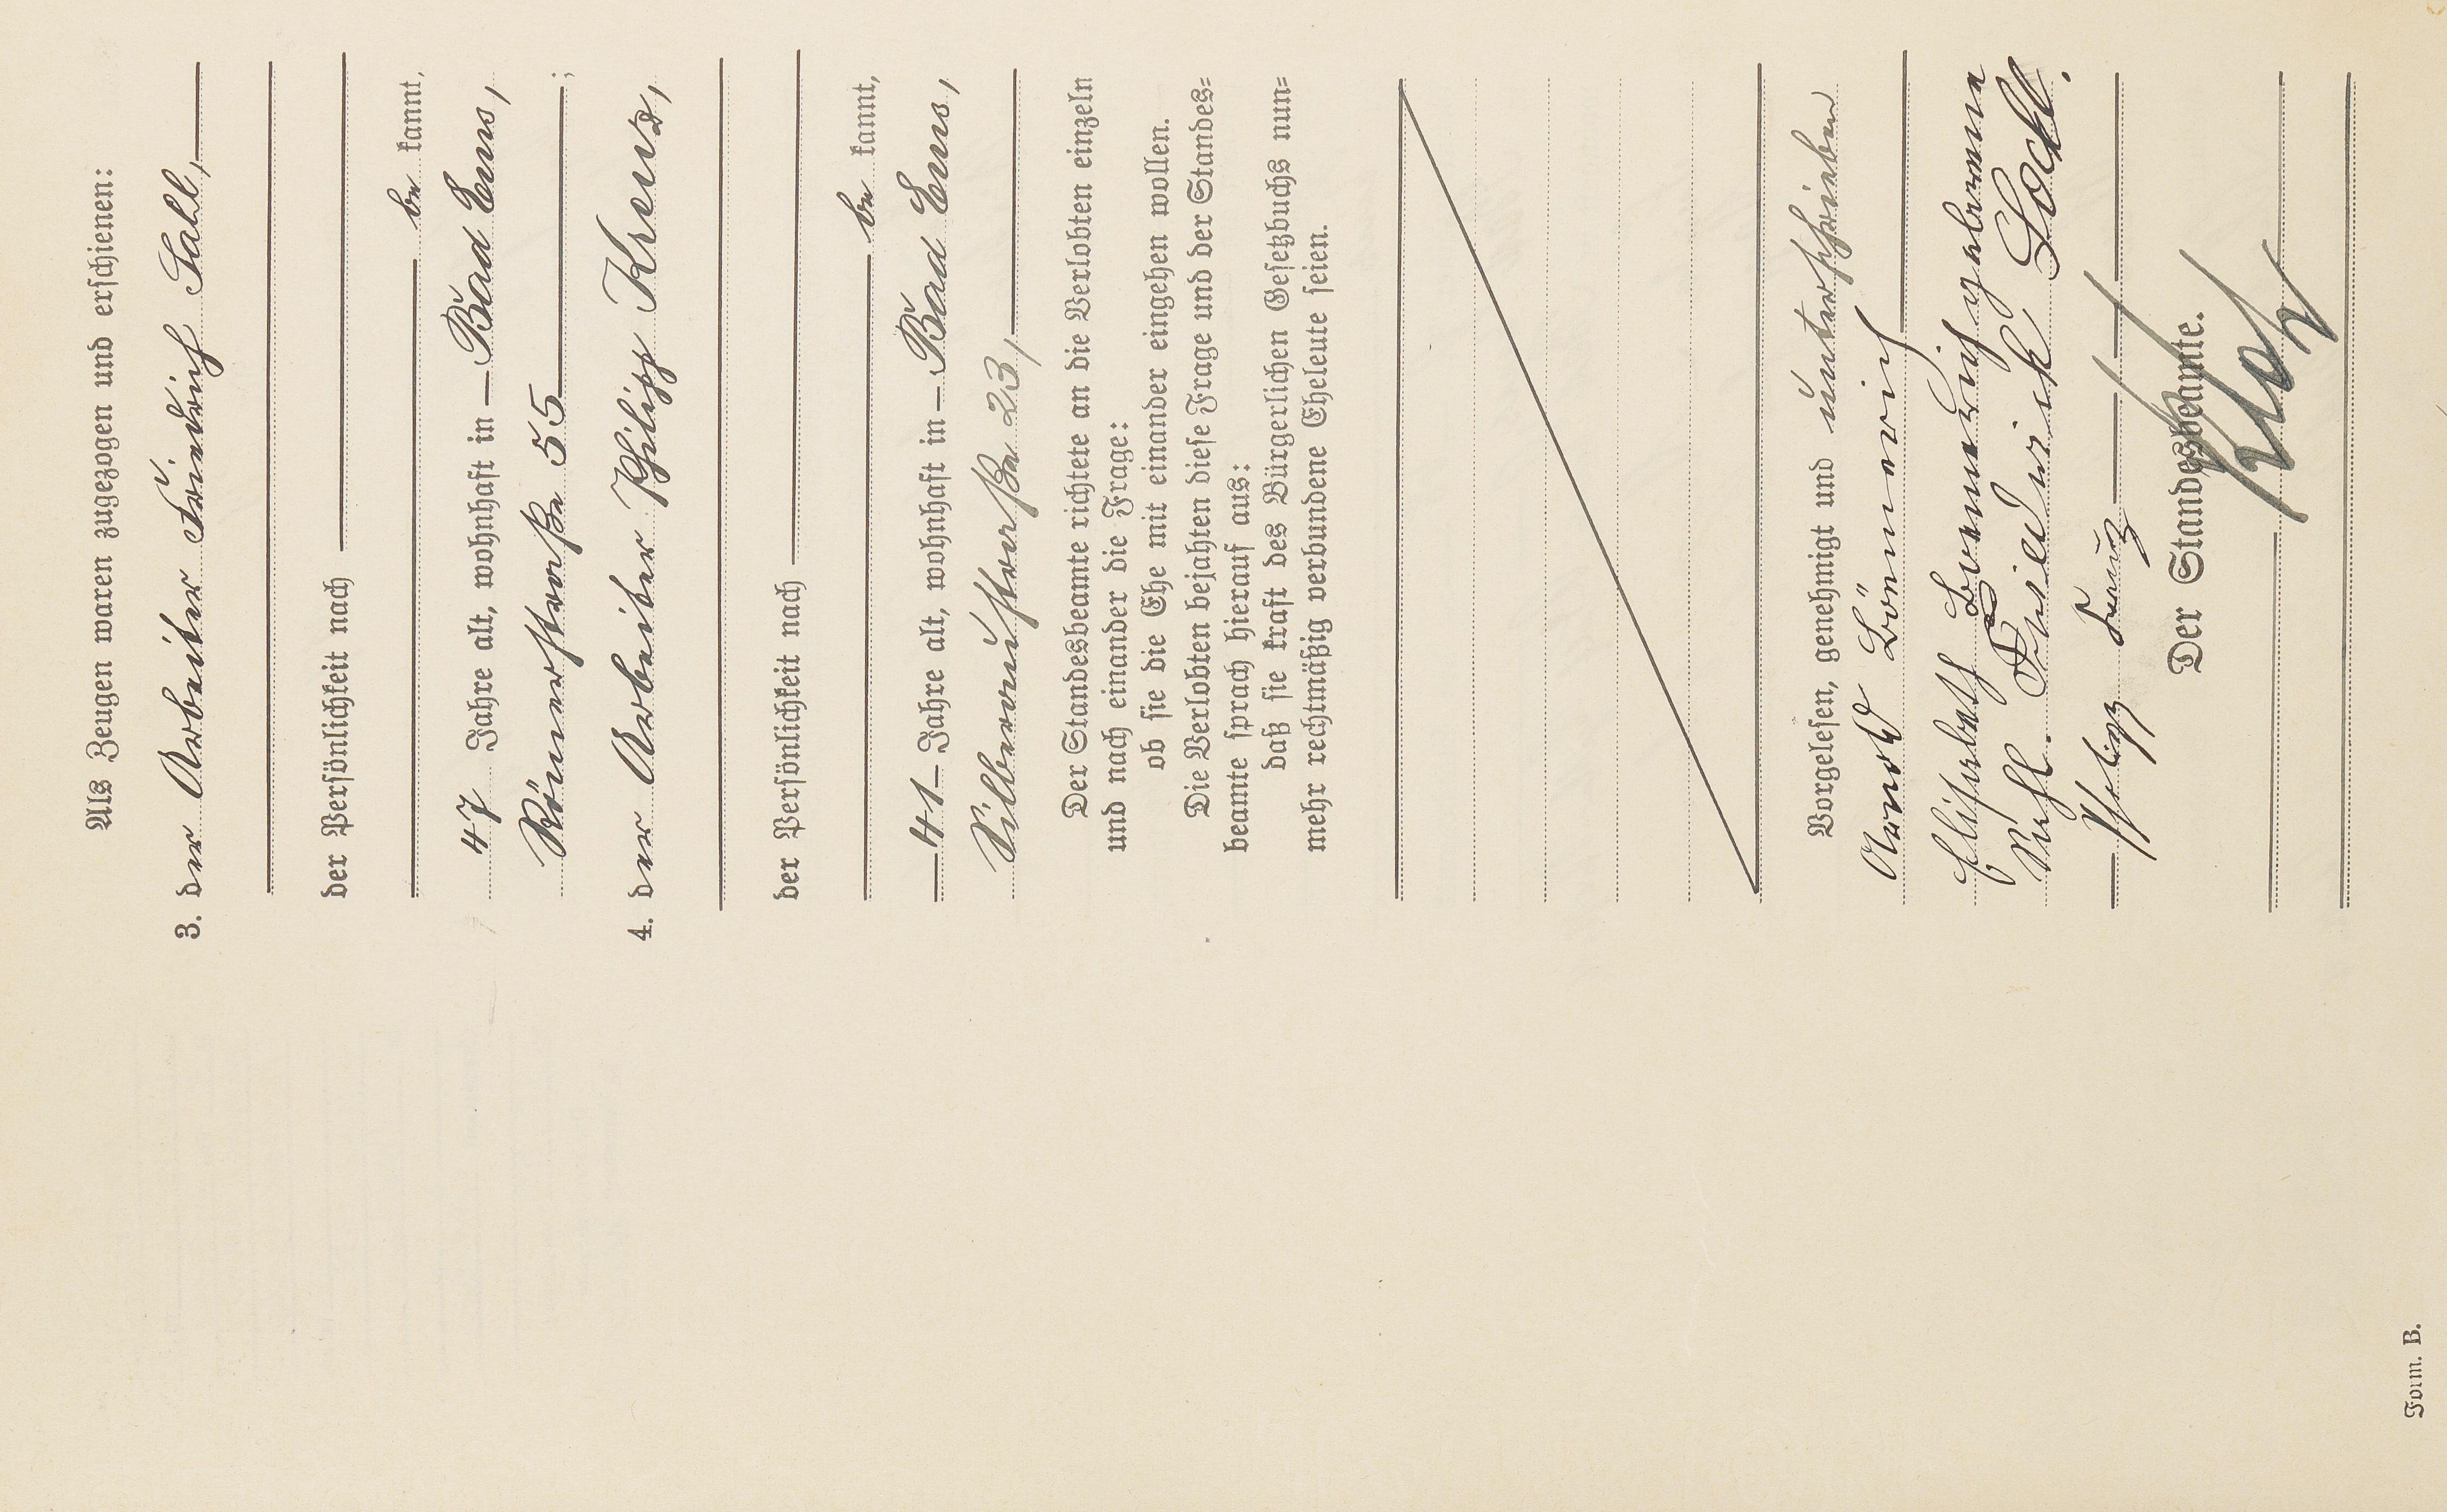 Als Zeugen waren zugezogen und erschienen:
3. der Arbeiter Friedrich Sahl,
der Persönlichkeit nach
be kannt,
47 Jahre alt, wohnhaft in Bad Ems,
Römerstraße 55
;
4. der Arbeiter Philipp
der Persönlichkeit nach
be kannt,
41 Jahre alt, wohnhaft in Bad Ems,
Silberaustraße 23,
Der Standesbeamte richtete an die Verlobten einzeln
und nach einander die Frage:
ob sie die Ehe mit einander eingehen wollen.
Die Verlobten bejahten diese Frage und der Standes=
beamte sprach hierauf aus:
daß sie kraft des Bürgerlichen Gesetzbuchs nun=
mehr rechtmäßig verbundene Eheleute seien.
Vorgelesen, genehmigt und unterschrieben
Elisabeth geborene
Friedrich
Philipp
Der Standesbeamte.
Form. B.